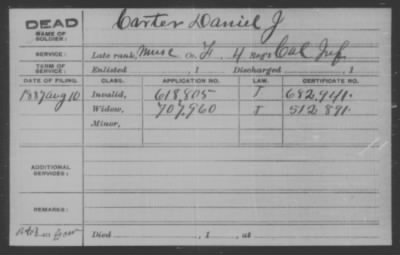 DEAD Carter Daniel J
NAME OF SOLDIER:
SERVICE: Late rank, Musc Co. H, 4 Reg't Cal Inf.
TERM OF SERVICE: Enlisted , 1 Discharged , 1
DATE OF FILING. CLASS. APPLICATION NO. LAW. CERTIFICATE NO.
1887 Aug 10 Invalid, 618,805 J 682,941.
Widow, 707,960 J 512 891.
Minor,
ADDITIONAL SERVICES:
REMARKS:
Died , 1 , at